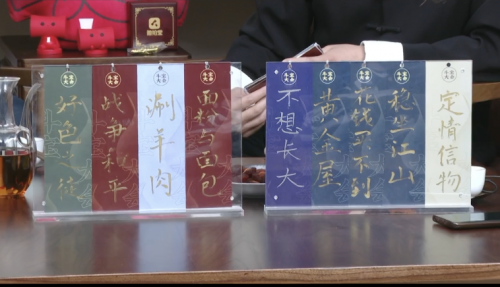 好色之徒
战争和平
涮羊肉
面粉与面包
不想长大
黄金屋
花钱买不到
稳坐江山
定情信物